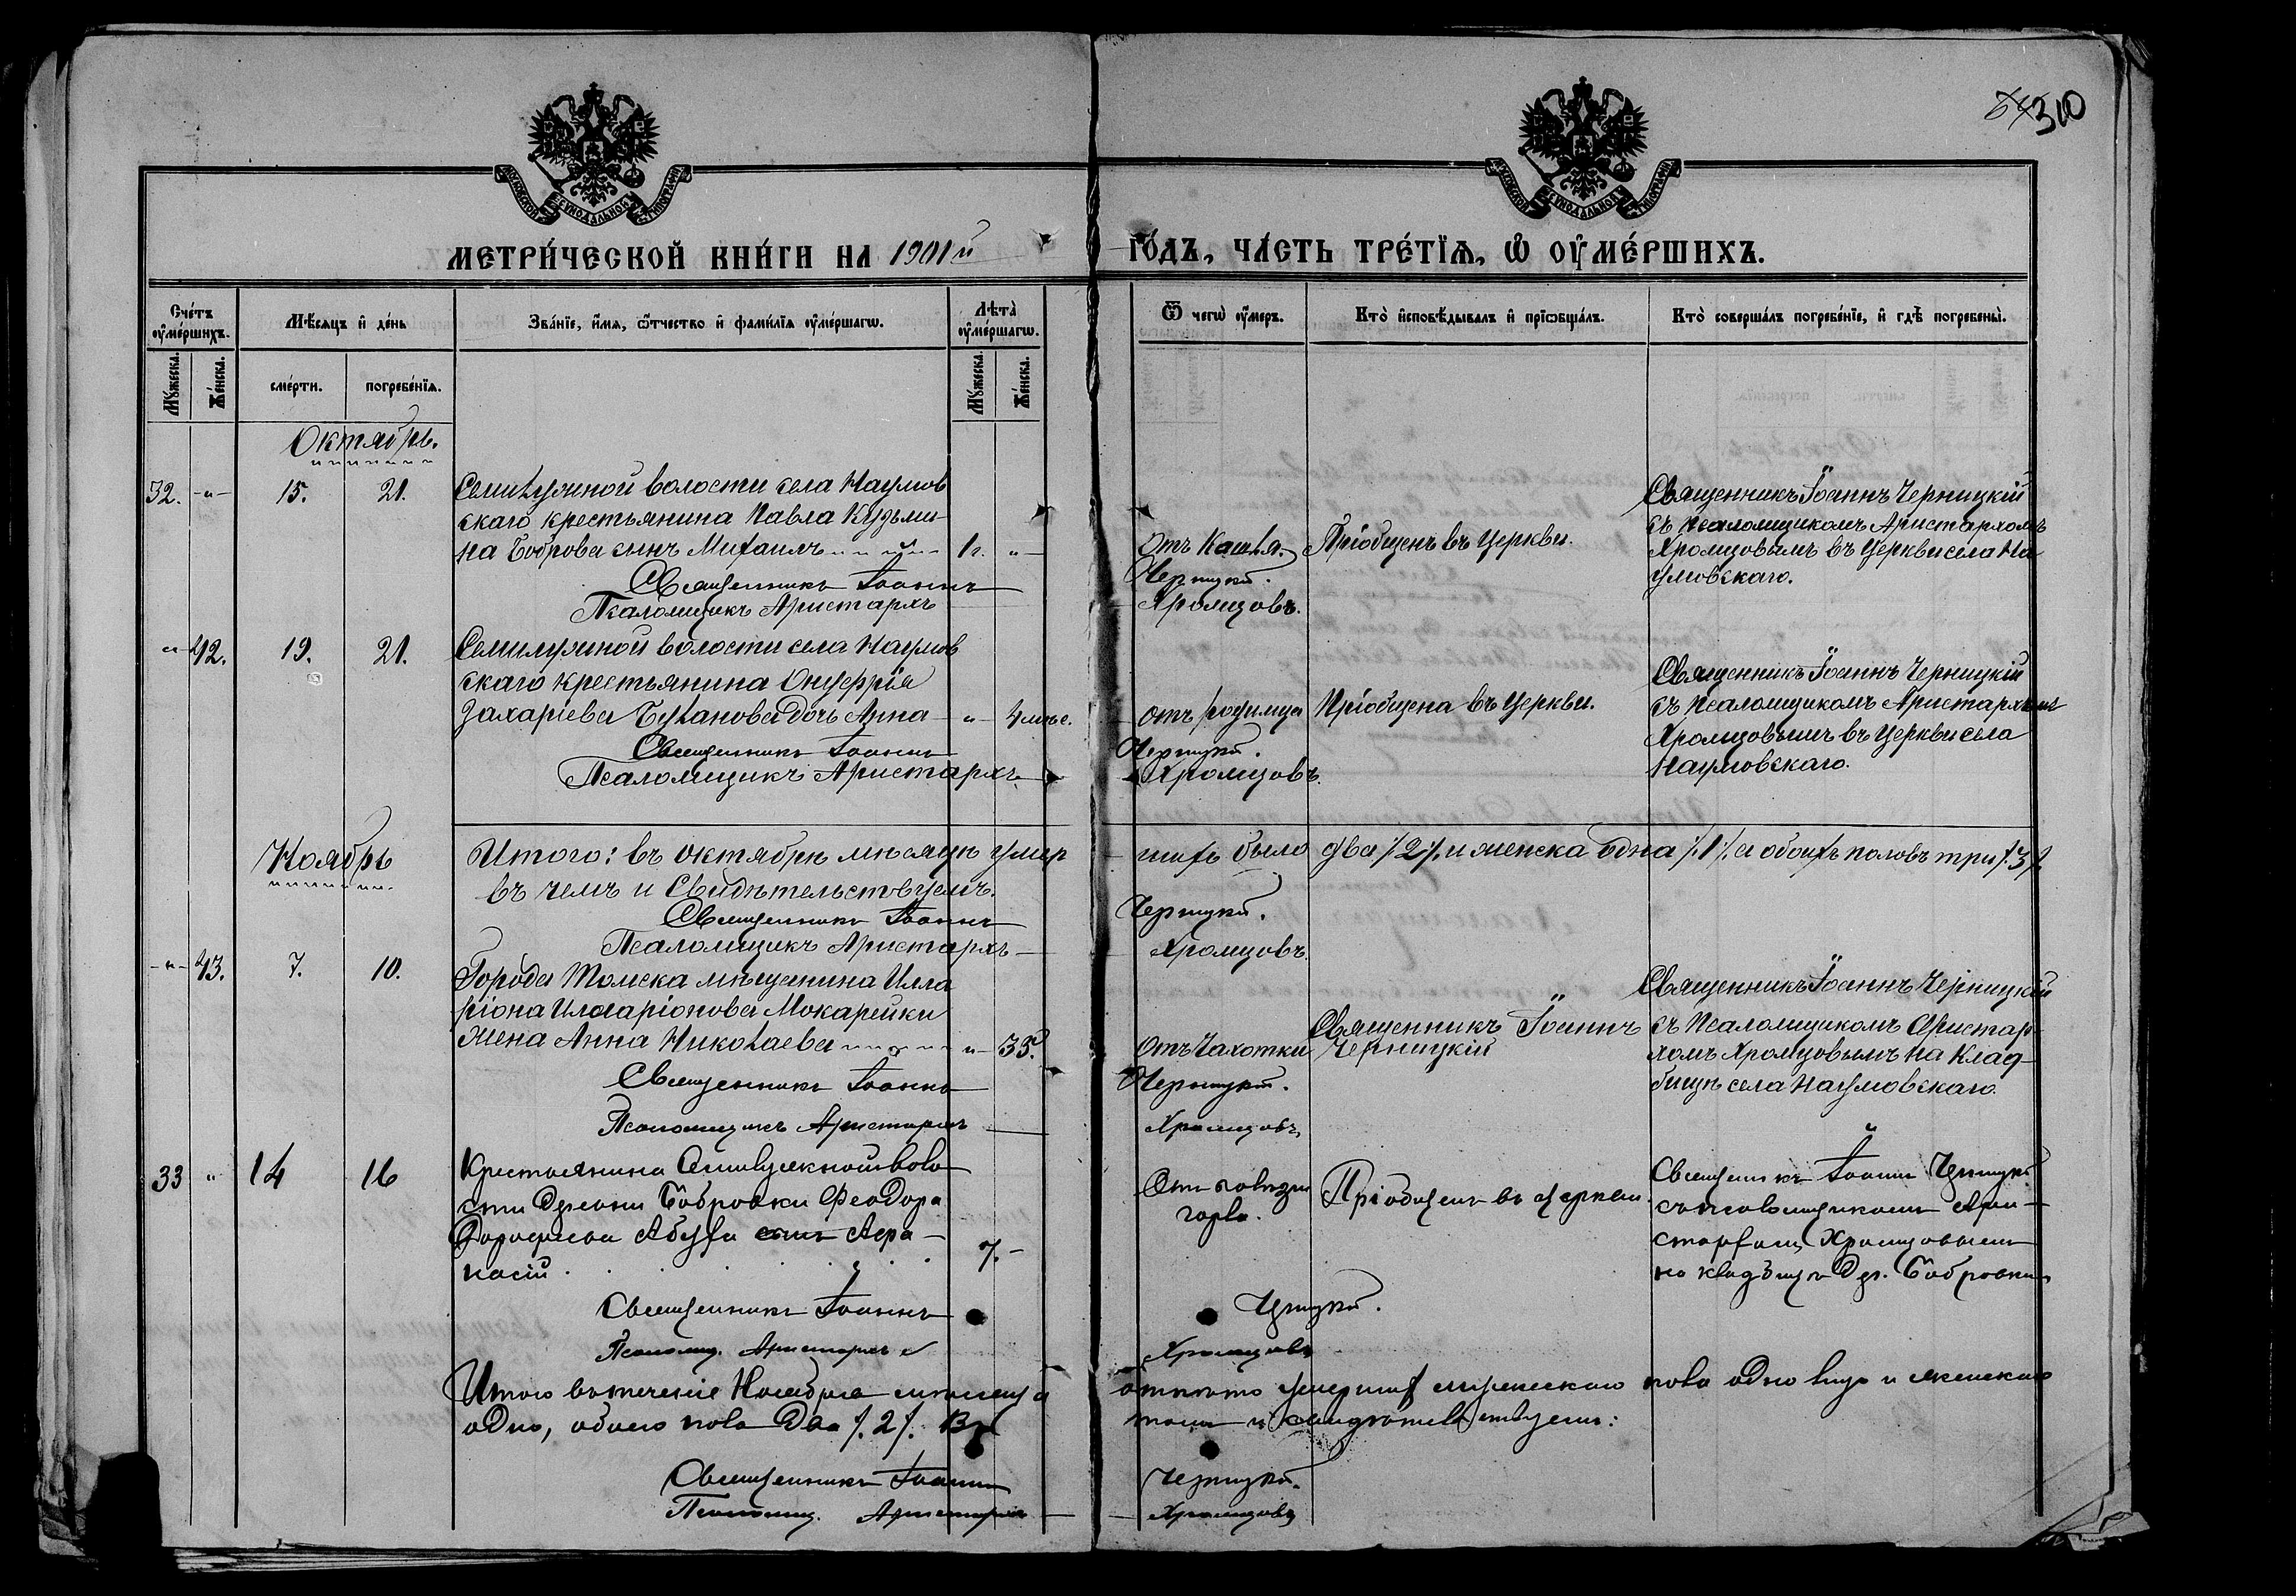 310
МЕТРИ́ЧЕСКОЙ КНИ́ГИ НА 1901й
ГО́ДЪ, ЧА́СТЬ ТРЕ́ТІѦ, Ѡ ОУМЕ́РШИХЪ.
Сче́тъ оуме́ршихъ.
Мѣ́сѧцъ и де́нь
Зва́нїе, и́мѧ, ѻ́тчество и фами́лїѧ оуме́ршагѡ.
Лѣта̀ оуме́ршагѡ.
Ѿ чегѡ̀ оу́меръ.
Кто̀ и҆сповѣ́дывалъ и прїѡбща́лъ.
Кто̀ соверша́лъ погребе́нїе, и гдѣ̀ погребены̀.
Мꙋ́жеска.
Же́нска.
сме́рти.
погребе́нїѧ.
Мꙋ́жеска.
Же́нска.
Октябрь.
32. -„- 15. 21.
Семилужной волости села Наумов
скаго крестьянина Павла Кузьми-
на Боброва сынъ Михаилъ 1 г. „-
Священникъ Іоаннъ
Псаломщикъ Аристархъ
Отъ Кашля.
Черницкій.
Хромцовъ.
Пріобщенъ въ Церкви.
Священникъ Іоаннъ Черницкій
съ Псаломщикомъ Аристархомъ
Хромцовымъ въ Церкви села На
умовскаго.
„- 42. 19. 21.
Семилужной волости села Наумов
скаго крестьянина Онуфрія
Захаріева Буланова дочь Анна - „- 4 мѣс.
Священникъ Іоаннъ
Псаломщикъ Аристархъ
отъ родимца
Черницкій.
Хромцовъ.
Пріобщена въ Церкви.
Священникъ Іоаннъ Черницкій
съ Псаломщикомъ Аристархомъ
Хромцовымъ въ Церкви села
Наумовскаго.
Ноябрь
Итого: въ октябрѣ мѣсяцѣ умер
шихъ было два /.2/. и женска одна /.1/. а обоихъ половъ три /.3/.
въ чемъ и Свидѣтельствуемъ.
Священникъ Іоаннъ Черницкій.
Псаломщикъ Аристархъ Хромцовъ.
-„- 43. 7. 10.
Города Томска мѣщанина Илла
ріона Илларіонова Мокарейки
жена Анна Николаева „- 35.
Священникъ Іоаннъ
Псаломщикъ Аристархъ
Отъ Чахотки
Черницкій.
Хромцовъ
Священникъ Іоаннъ
Черницкій
Священникъ Іоаннъ Черницкій
съ Псаломщикомъ Аристар-
хомъ Хромцовымъ на клад-
бищѣ села Наумовскаго.
33 „ 14 16
Крестьянина Семилужной воло
сти Деревни Бобровки Феодора
сынъ Афа-
насій 7. -
Священникъ Іоаннъ
Псаломщ. Аристархъ
Отъ
горла.
Черницкій.
Хромцовъ
Пріобщенъ въ церкви.
Священникъ Іоаннъ Черницкій
съ псаломщикомъ Ари-
стархомъ Хромцовымъ
на кладбищѣ Дер. Бобровки
Итого въ теченіе Ноября мѣсяца
умершихъ мужескаго пола одно лицо и женскаго
одно, обоего пола два /.2/. Въ
томъ и свидѣтельствуемъ:
Священникъ Іоаннъ Черницкій.
Псаломщ. Аристархъ Хромцовъ